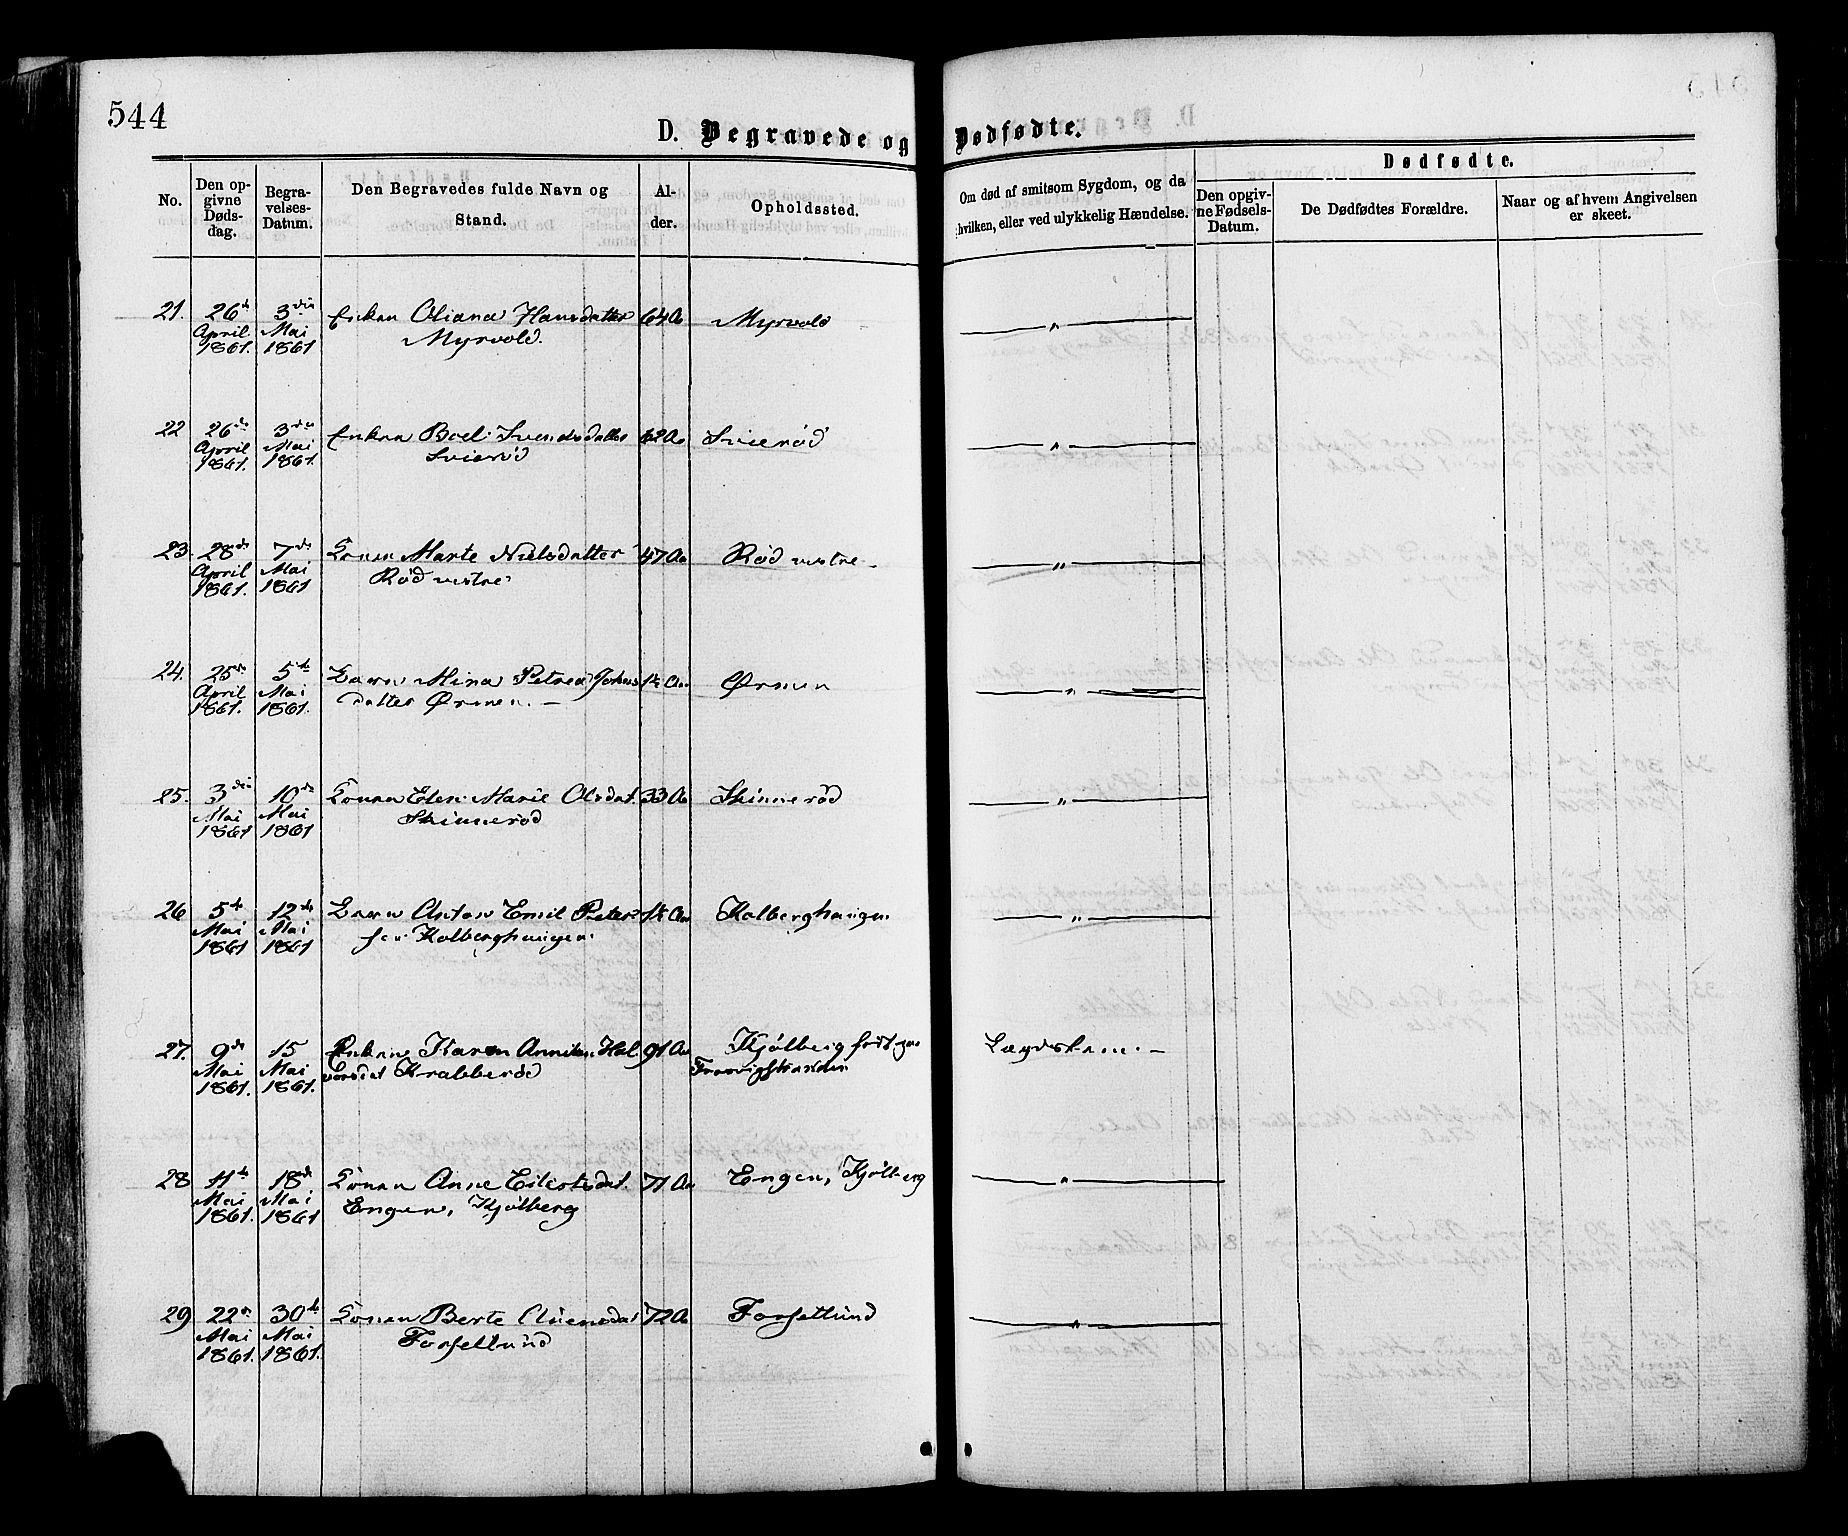 544
D. Begravede og Dødfødte.
No.
Den opgivne Dødsdag.
Begravelses-Datum.
Den Begravedes fulde Navn og Stand.
Alder.
Opholdssted.
Om død af smitsom Sygdom, og da hvilken, eller ved ulykkelig Hændelse.
Dødfødte.
Den opgivne Fødsels-Datum.
De Dødfødtes Forældre.
Naar og af hvem Angivelsen er skeet.
21. 26de 3die Enken Oliana Hansdatter 64 Aa Myrvold — „ —
April Mai Myrvold.
1861. 1861
22 26de 3die Enken Boel Svendsdatter 62 Aa Svierød — „ —
April Mai Svierød
1861. 1861.
23. 28de 7de Konen Marte Nielsdatter 47 Aa Rød vestre — „ —
April Mai Rød vestre
1861. 1861
24. 25de 5te Barn Mina Petrea Johns Ørmen — „ —
April Mai datter Ørmen. —
1861. 1861.
25. 3die 10de Konen Elen Marie Olsdat. 33 Aa Skinnerød — „ —
Mai Mai Skinnerød
1861 1861
26 5te 12te Barn Anton Emil Peter Kolberghaugen — „ —
Mai Mai sen Kolberghaugen
1861 1861
27. 9de 15 Enken Karen Hal 91 Aa Kjølberg født paa Lægdslem. —
Mai Mai vorsdat Krabberød
1861. 1861.
28 11te 18de Konen Anne 71 Aa Engen, Kjølberg — „ —
Mai Mai Engen, Kjølberg
1861. 1861
29 22de 30te Konen Berte 72 Aa Forsetlund — „ —
Mai Mai Forsetlund
1861. 1861.